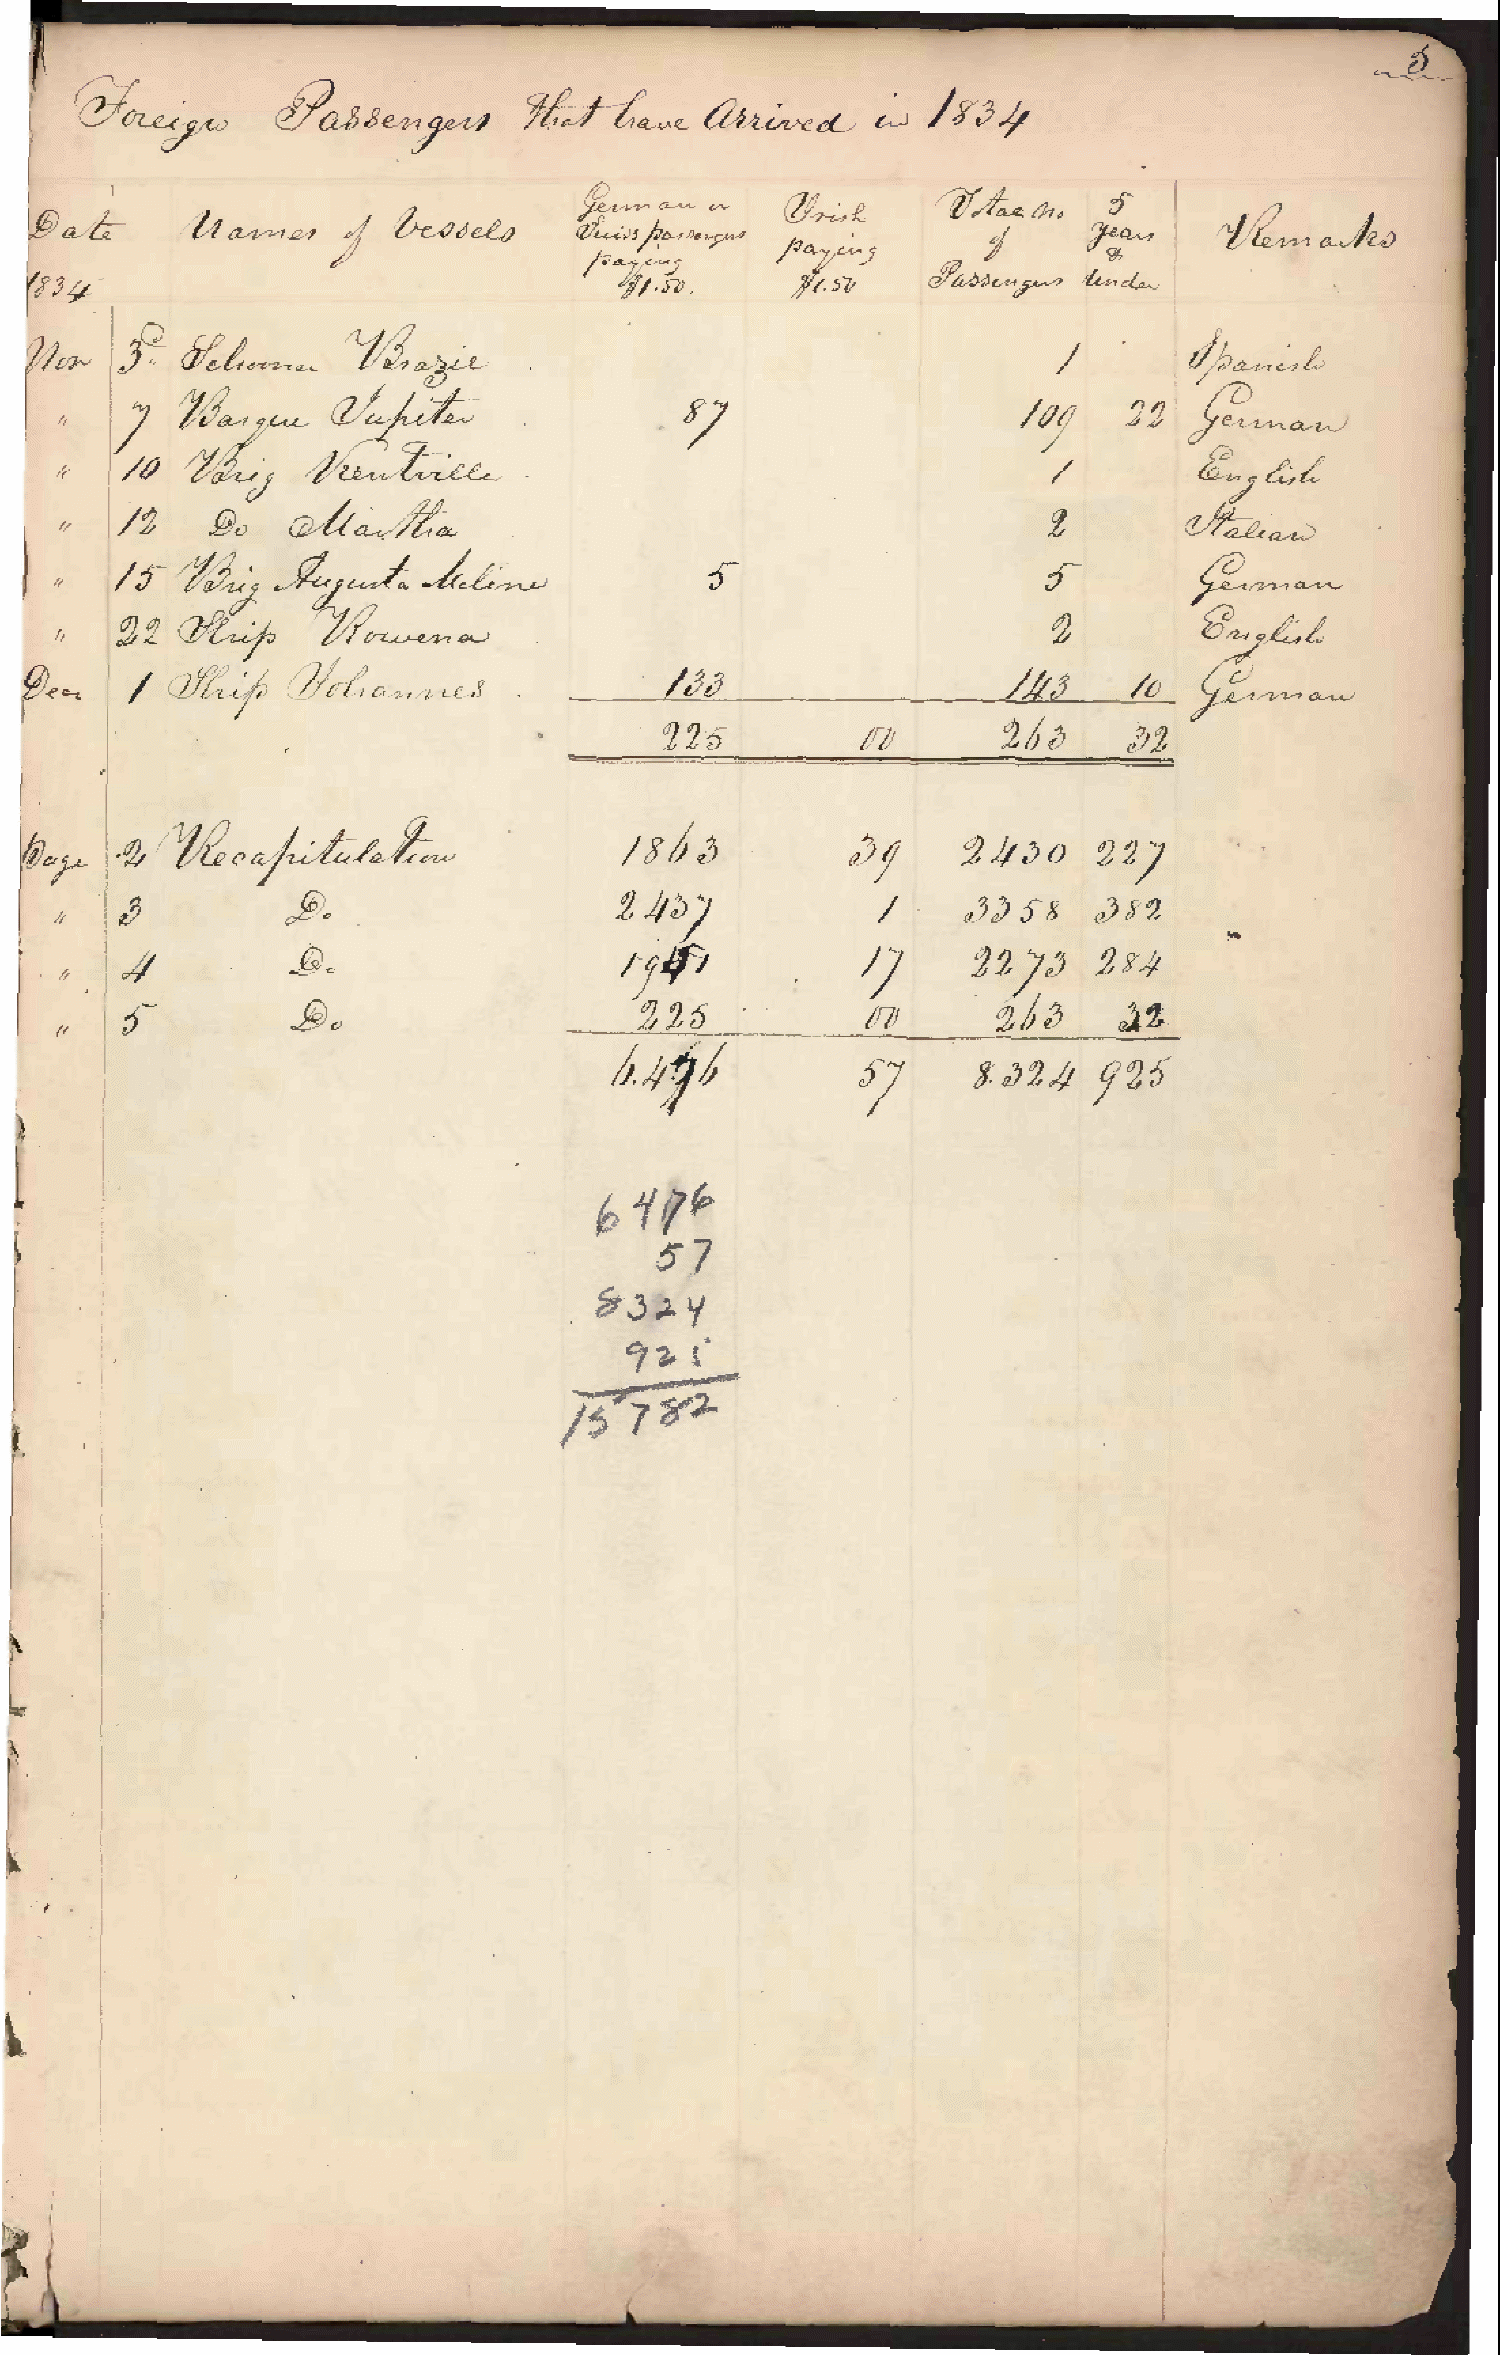 5
Foreign Passengers that have Arrived in 1834
Date Names of Vessels German or Swiss passengers paying $1.50. Irish paying $1.50 Total No of Passengers 5 years & Under Remarks
1834
Nov 3d Schooner Brazil 1 Spanish
" 7 Barque Jupiter 87 109 22 German
" 10 Brig Kentville 1 English
" 12 Do Martha 2 Italian
" 15 Brig Augusta Meline 5 5 German
" 22 Ship Rowena 2 English
Decr 1 Ship Johannes 133 143 10 German
225 00 263 32
Page 2 Recapitulation 1863 39 2430 227
" 3 Do 2437 1 3358 382
" 4 Do 17 2273 284
" 5 Do 225 00 263 32
6.476 57 8.324 925
6476
57
8324
925
15782